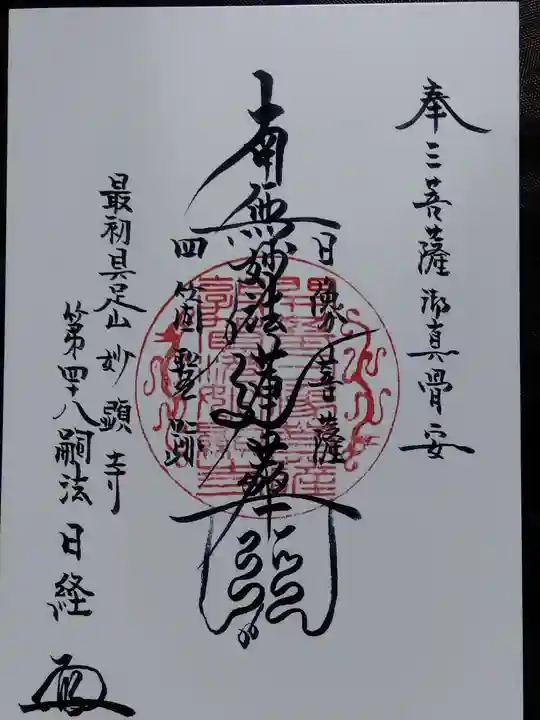 奉 三菩薩御真骨安
日像菩薩
南無妙法蓮華経
四箇霊蹟
最初具足山 妙顕寺
第四十八嗣法 日経